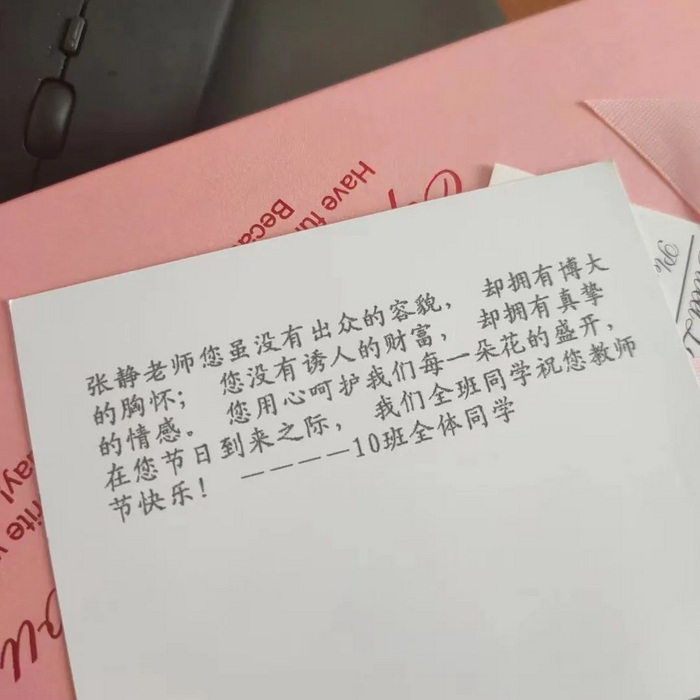 张静老师您虽没有出众的容貌， 却拥有博大
的胸怀； 您没有诱人的财富， 却拥有真挚
的情感。 您用心呵护我们每一朵花的盛开，
在您节日到来之际， 我们全班同学祝您教师
节快乐！ ————10班全体同学
Have fun